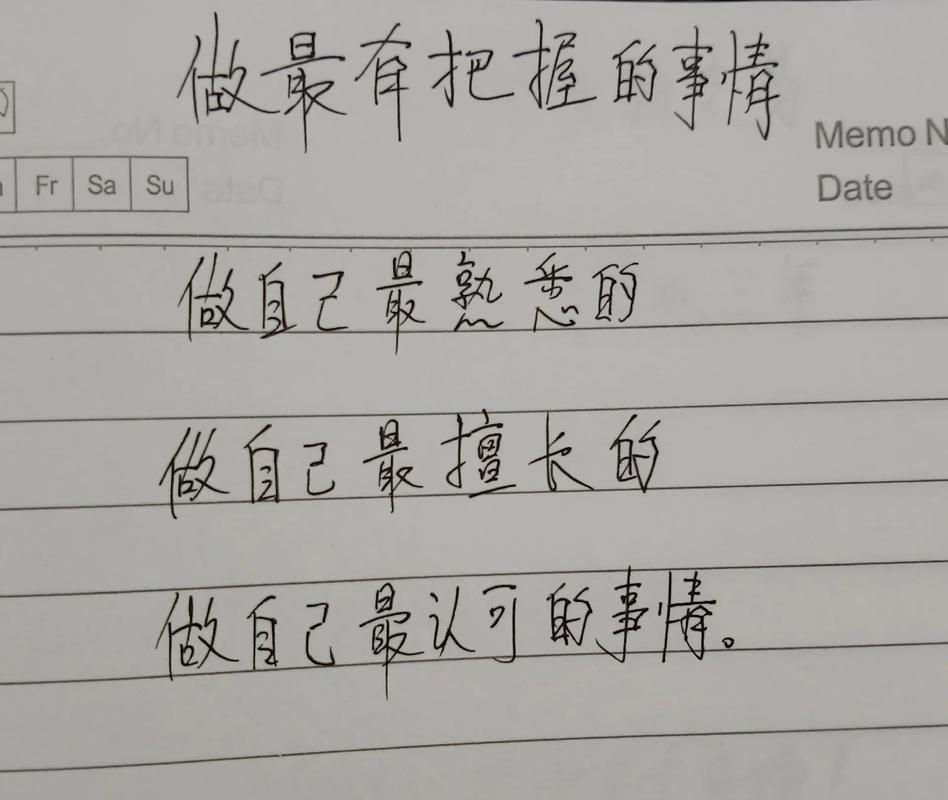 做最有把握的事情
Memo N
Fr Sa Su
Date
做自己最熟悉的
做自己最擅长的
做自己最认可的事情。